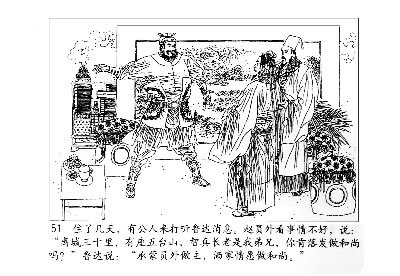 51 住了几天，有公人来打听鲁达消息。赵员外看事情不好，说：
“离城三十里，有座五台山，智真长老是我弟兄，你肯落发做和尚
吗？”鲁达说：“承蒙员外做主，洒家情愿做和尚。”